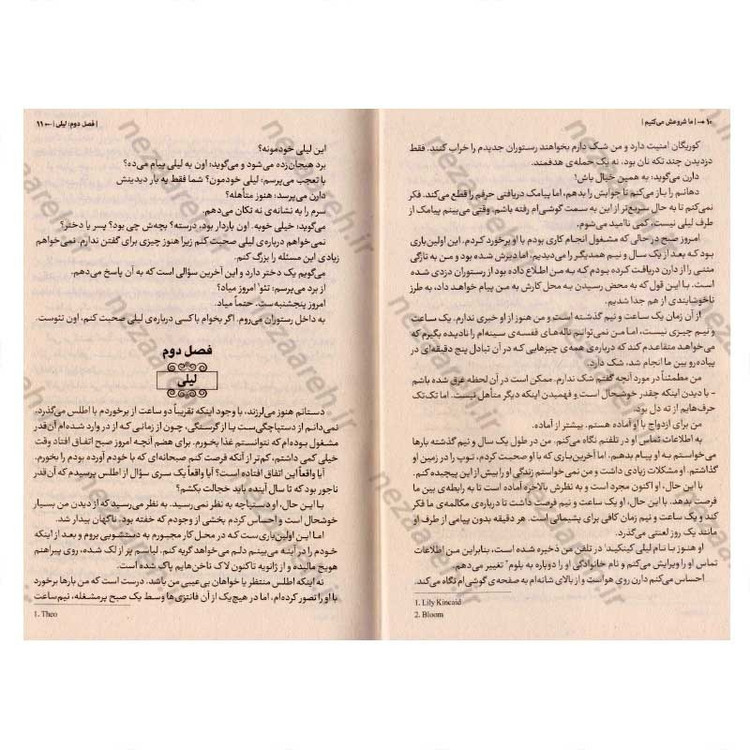 ۱۰ | ما شروعش می‌کنیم |
کوریگان امنیت دارد و من شک دارم بخواهند رستوران جدیدم را خراب کنند. فقط
دزدیدن چند تکه نان بود، نه یک حمله‌ی هدفمند.
دارن می‌گوید: به همین خیال باش!
دهانم را باز می‌کنم تا جوابش را بدهم، اما پیامک دریافتی حرفم را قطع می‌کند. فکر
نمی‌کنم تا به حال سریع‌تر از این به سمت گوشی‌ام رفته باشم. وقتی می‌بینم پیامک از
طرف لیلی نیست، کمی ناامید می‌شوم.
امروز صبح در حالی که مشغول انجام کاری بودم با او برخورد کردم، این اولین‌باری
بود که بعد از یک سال و نیم همدیگر را می‌دیدیم، اما دیرش شده بود و من به تازگی
متنی را از دارن دریافت کرده بودم که به من اطلاع داده بود از رستوران دزدی شده
است. با این قول که به محض رسیدن به محل کارش به من پیام خواهد داد، به طرز
ناخوشایندی از هم جدا شدیم.
از آن زمان یک ساعت و نیم گذشته است و من هنوز از او خبری ندارم. یک ساعت
و نیم چیزی نیست، اما من نمی‌توانم ناله‌های قفسه‌ی سینه‌ام را نادیده بگیرم که
می‌خواهد متقاعدم کند که درباره‌ی همه‌ی چیزهایی که در آن تبادل پنج دقیقه‌ای در
پیاده‌رو بین ما انجام شد، شک دارد.
من مطمئناً در مورد آنچه گفتم شک ندارم. ممکن است در آن لحظه غرق شده باشم
- با دیدن اینکه چقدر خوشحال است و فهمیدن اینکه دیگر متأهل نیست. اما تک‌تک
حرف‌هایم از ته دل بود.
من برای ازدواج با او آماده هستم. بیشتر از آماده.
به اطلاعات تماس او در تلفنم نگاه می‌کنم. من در طول یک سال و نیم گذشته بارها
می‌خواستم به او پیام بدهم، اما آخرین‌باری که با او صحبت کردم، توپ را در زمین او
گذاشتم. او مشکلات زیادی داشت و من نمی‌خواستم زندگی او را بیش از این پیچیده کنم.
با این حال، او اکنون مجرد است و به نظرش بالاخره آماده است تا به رابطه‌ی بین ما
فرصت بدهد. با این حال، او یک ساعت و نیم فرصت داشت تا درباره‌ی مکالمه‌ی ما فکر
کند و یک ساعت و نیم زمان کافی برای پشیمانی است. هر دقیقه بدون پیامی از طرف او
مانند یک روز لعنتی می‌گذرد.
او هنوز با نام لیلی کینکید¹ در تلفن من ذخیره شده است، بنابراین من اطلاعات
تماس او را ویرایش می‌کنم و نام خانوادگی او را دوباره به بلوم² تغییر می‌دهم.
احساس می‌کنم دارن روی هوا است و از بالای شانه‌ام به صفحه‌ی گوشی‌ام نگاه می‌کند.
1. Lily Kincaid
2. Bloom
| فصل دوم: لیلی | ۱۱
این لیلی خودمونه؟
برد هیجان‌زده می‌شود و می‌گوید: اون به لیلی پیام می‌ده؟
با تعجب می‌پرسم: لیلی خودمون؟ شما فقط یه بار دیدینش
دارن می‌پرسد: هنوز متأهله؟
سرم را به نشانه‌ی نه تکان می‌دهم.
می‌گوید: خیلی خوبه. اون باردار بود، درسته؟ بچه‌ش چی بود؟ پسر یا دختر؟
نمی‌خواهم درباره‌ی لیلی صحبت کنم زیرا هنوز چیزی برای گفتن ندارم. نمی‌خواهم
زیادی این مسئله را بزرگ کنم.
می‌گویم یک دختر دارد و این آخرین سؤالی است که به آن پاسخ می‌دهم.
از برد می‌پرسم: تئو¹ امروز میاد؟
امروز پنجشنبه‌ست. حتماً میاد.
به داخل رستوران می‌روم. اگر بخوام با کسی درباره‌ی لیلی صحبت کنم، اون تئوست.
فصل دوم
لیلی
دستانم هنوز می‌لرزند، با وجود اینکه تقریباً دو ساعت از برخوردم با اطلس می‌گذرد.
نمی‌دانم از دستپاچگی‌ست یا از گرسنگی، چون از زمانی که از در وارد شده‌ام آن‌قدر
مشغول بوده‌ام که نتوانستم غذا بخورم. برای هضم آنچه امروز صبح اتفاق افتاد وقت
خیلی کمی داشتم، کم‌تر از آنکه فرصت کنم صبحانه‌ای که با خودم آورده بودم را بخورم.
آیا واقعاً این اتفاق افتاده است؟ آیا واقعاً یک سری سؤال از اطلس پرسیدم که آن‌قدر
ناجور بود که تا سال آینده باید خجالت بکشم؟
با این حال، او دستپاچه به نظر نمی‌رسید. به نظر می‌رسید که از دیدن من بسیار
خوشحال است و احساس کردم بخشی از وجودم که خفته بود، ناگهان بیدار شد.
اما این اولین‌باری‌ست که در محل کار مجبورم به دستشویی بروم و بعد از اینکه
خودم را در آینه می‌بینم دلم می‌خواهد گریه کنم. لباسم پر از لک شده، روی پیراهنم
هویج مالیده و از ژانویه تاکنون لاک ناخن‌هایم پاک شده است.
نه اینکه اطلس منتظر یا خواهان بی‌عیبی من باشد. درست است که من بارها برخورد
با او را تصور کرده‌ام، اما در هیچ‌یک از آن فانتزی‌ها وسط یک صبح پرمشغله، نیم‌ساعت
1. Theo
nezaareh.ir